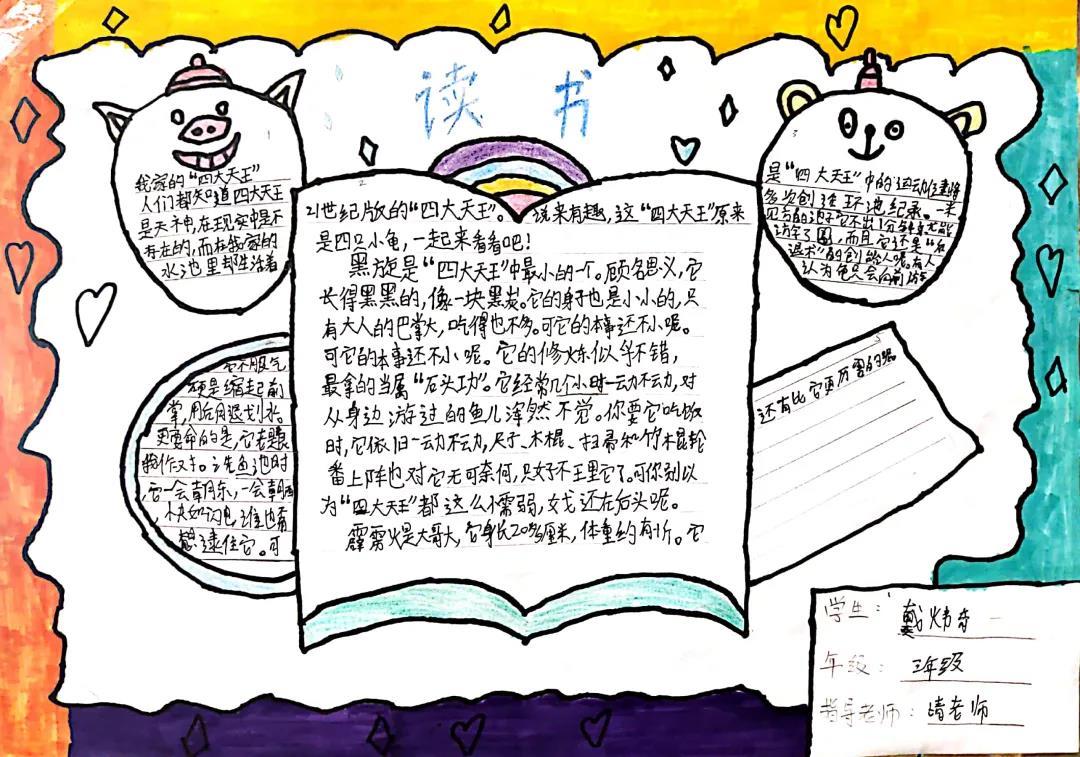 读书
我家的“四大天王”
人们都知道四大天王
是天神,在现实中是不
存在的,而在我家的
水池里却生活着
21世纪版的“四大天王”。说来有趣,这“四大天王”原来
是四只小龟,一起来看看吧!
黑旋是“四大天王”中最小的一个。顾名思义,它
长得黑黑的,像一块黑炭。它的身子也是小小的,只
有大人的巴掌大,吃得也不多。可它的本事还不小呢。
可它的本事还不小呢。它的修炼似乎不错,
最拿的当属“石头功”。它经常几个小时一动不动,对
从身边游过的鱼儿浑然不觉。你要它吃饭
时,它依旧一动不动,尺子、木棍、扫帚和竹棍轮
番上阵也对它无可奈何,只好不理它了。可你别以
为“四大天王”都这么懦弱,好戏还在后头呢。
霹雳火是大哥大,它身长20多厘米,体重约有斤。它
是“四大天王”中的运动健将
多次创造环池纪录。一米
见方的池子它不出1分钟就能
游完了圈,而且它还是“
退术”的创始人呢。有人
认为龟只会向前游
它不服气
硬是缩起前
掌,用后肢退划水
更要命的是,它老跟
我作对。洗鱼池时
它一会朝东,一会朝西
,快如闪电,谁也甭
想逮住它。可
还有比它更厉害的呢
学生:戴炜奇
年级:三年级
指导老师:靖老师